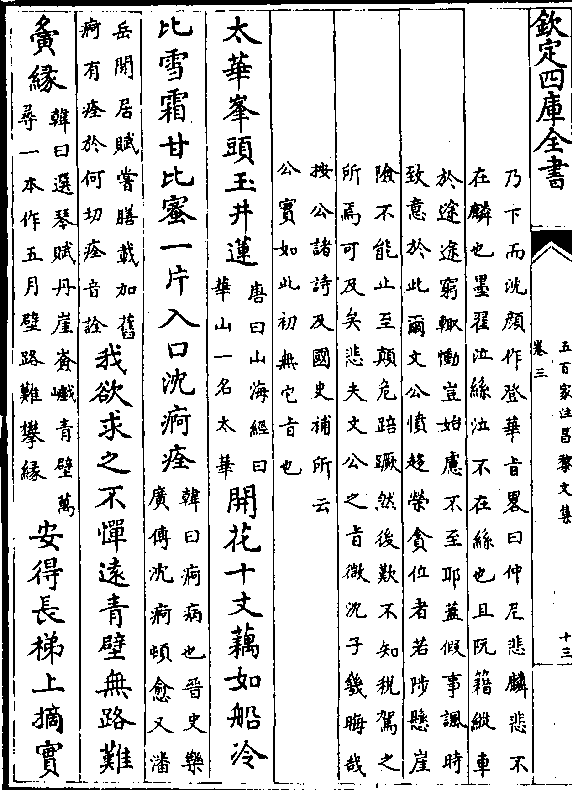 欽定四庫全書
五百家注昌黎文集
卷三
十三
乃下而沈顔作登華㫖畧曰仲尼悲麟悲不
在麟也墨翟泣絲泣不在絲也且阮籍縱車
於途途窮輙慟豈始慮不至耶蓋假事諷時
致意於此爾文公憤趨榮貪位者若陟懸崖
險不能止至顛危踣蹶然後歎不知税駕之
所焉可及矣悲夫文公之㫖微沈子幾晦哉
按公諸詩及國史補所云
公實如此初無它㫖也
太華峯頭玉井蓮
唐曰山海經曰
華山一名太華
開花十丈藕如船冷
比雪霜甘比蜜一片入口沈痾痊
韓曰痾病也晋史樂
廣傳沈痾頓愈又潘
岳閒居賦嘗膳載加舊
痾有痊於何切痊音詮
我欲求之不憚遠青壁無路難
夤縁
韓曰選琴賦丹崖嶮巇青壁萬
尋一本作五月壁路難攀縁
安得長梯上摘實